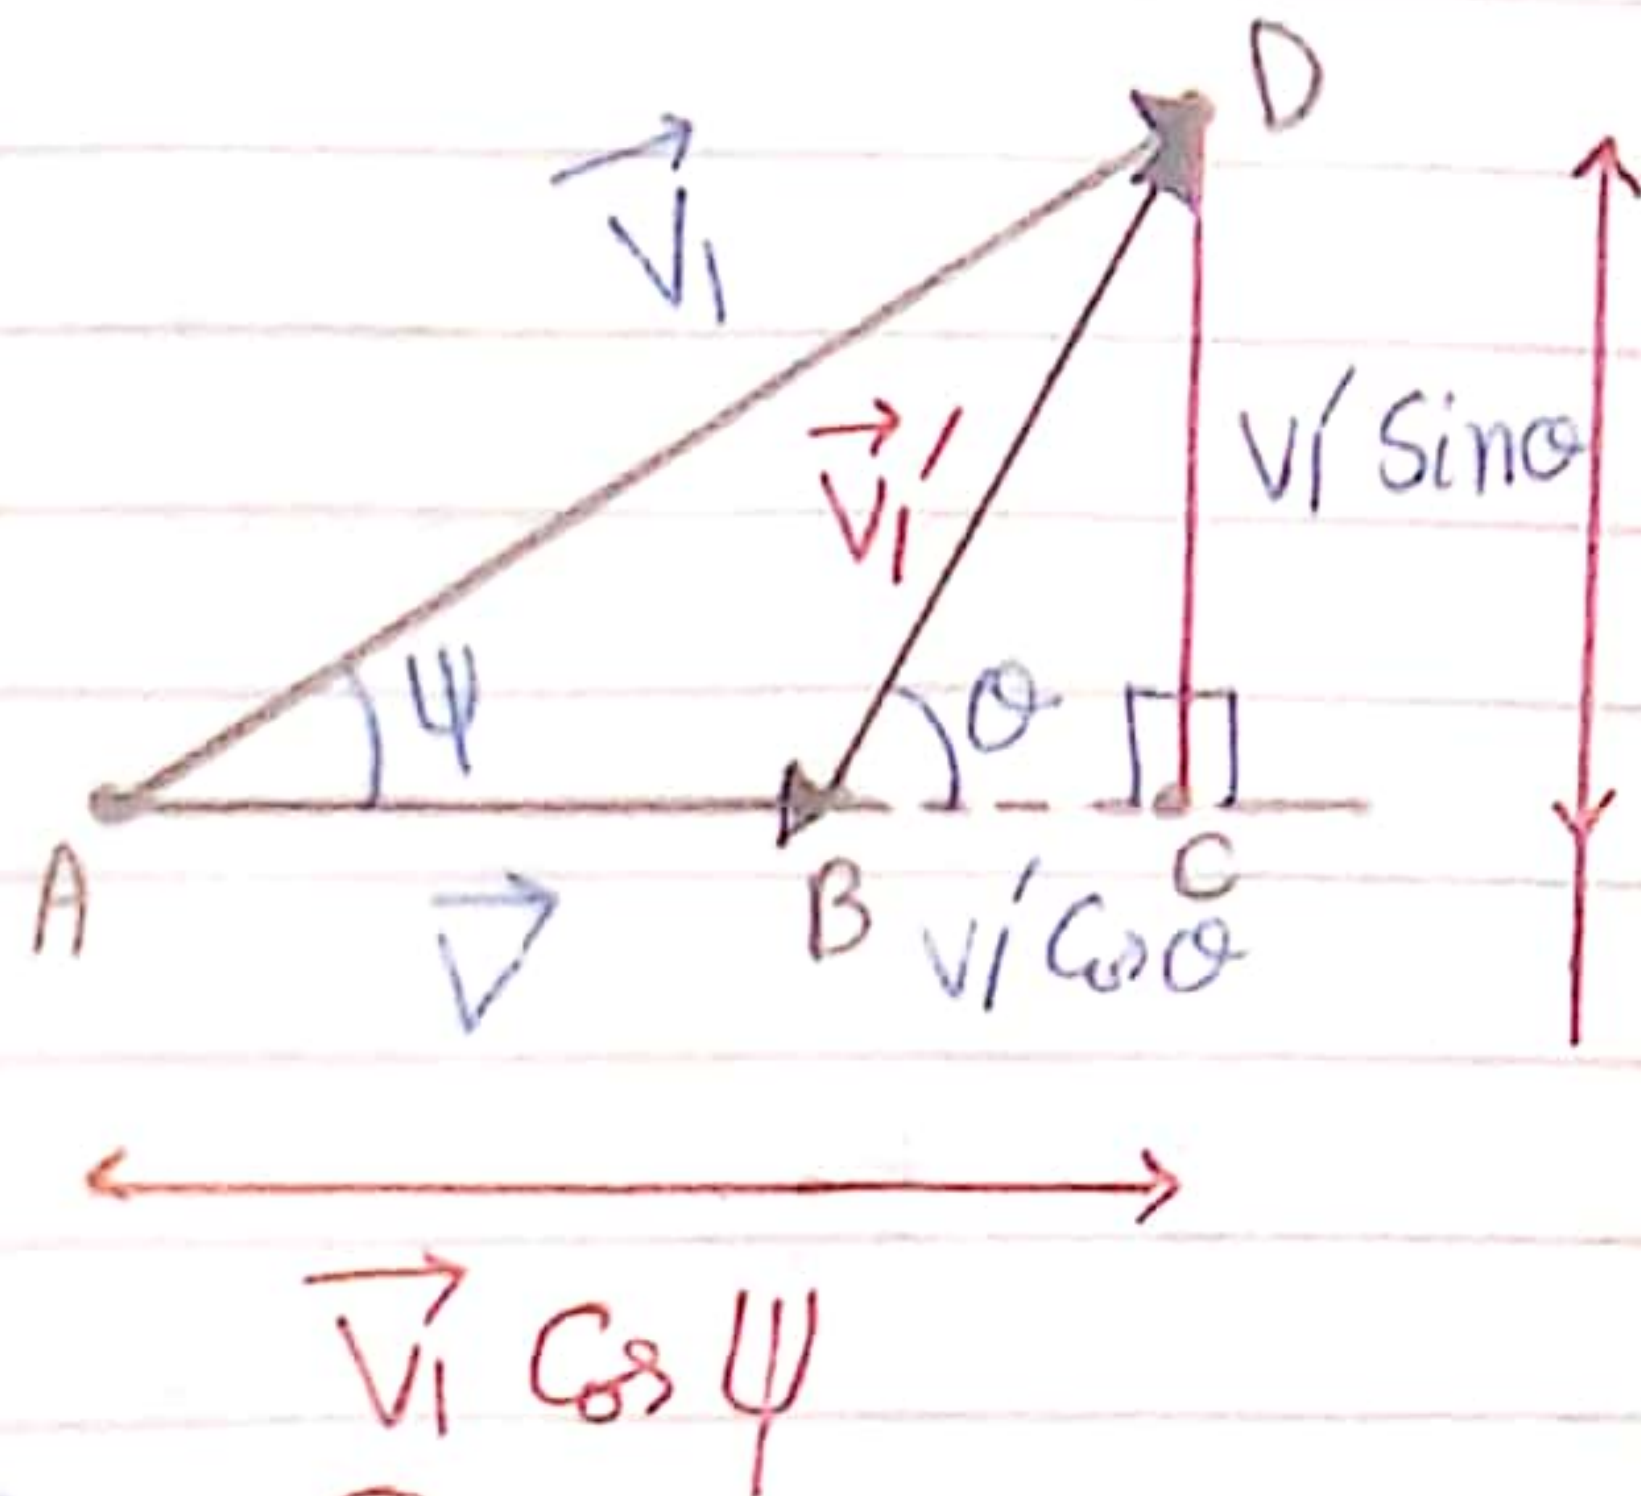 D
V⃗₁
V⃗₁′
V₁′ Sinθ
ψ
θ
A
B
C
V⃗
V₁′ Cosθ
V⃗₁ Cos ψ